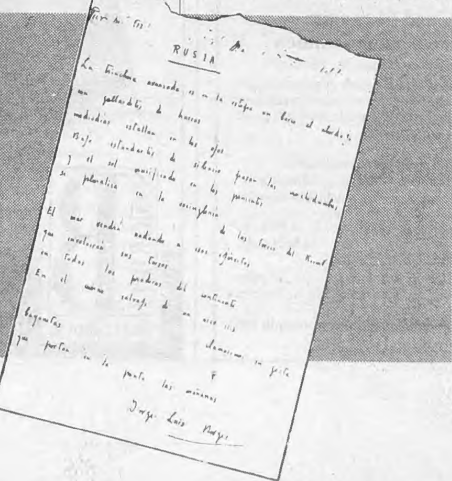 RUSIA
La trinchera avanzada es en la estepa un barco al abordaje
con gallardetes de hurras
mediodías estallan en los ojos
Bajo estandartes de silencio pasan las muchedumbres
y el sol crucificado en los ponientes
se pluraliza en la vocinglería
de las torres del Kreml
El mar vendrá nadando a esos ejércitos
que envolverán sus torsos
en todas las praderas del continente
En el cuerno salvaje de un arco iris
clamaremos su gesta
bayonetas
que portan en la punta las mañanas
Jorge Luis Borges